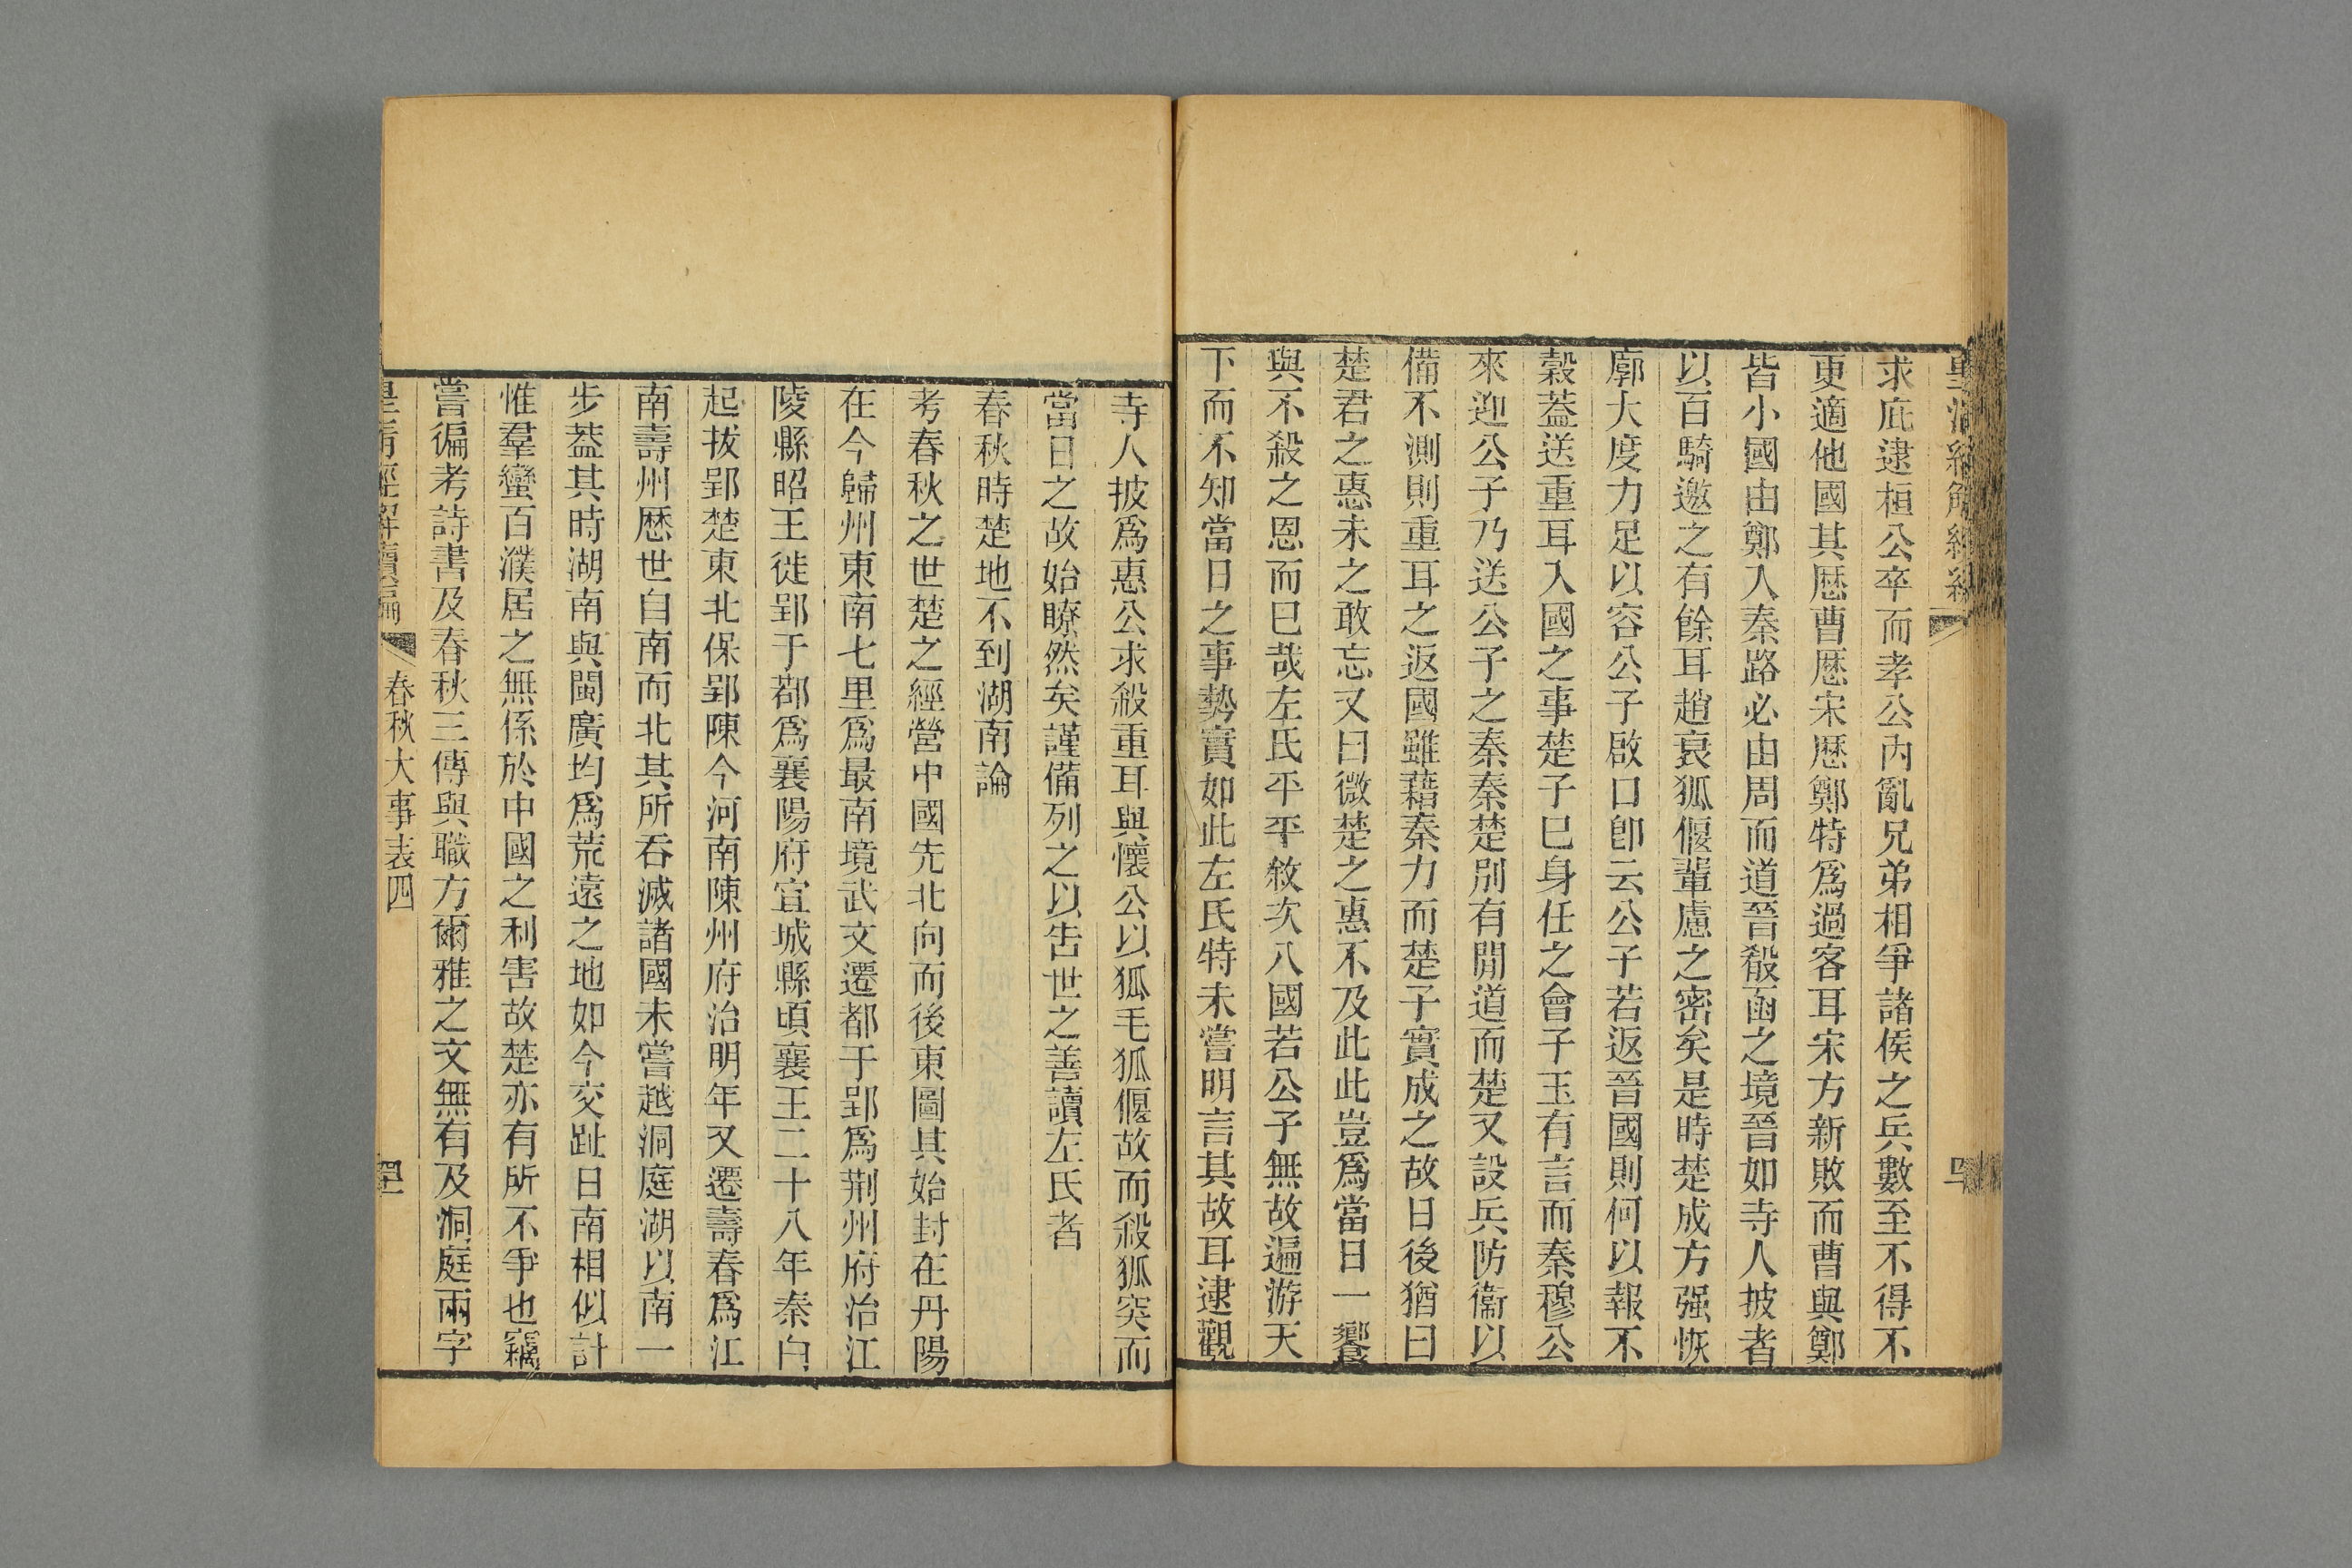 求庇逮桓公卒而孝公內亂兄弟相爭諸侯之兵數至不得不
更適他國其厯曹厯宋厯鄭特爲過客耳宋方新敗而曹與鄭
皆小國由鄭入秦路必由周而道晉殽函之境晉如寺人披者
以百騎邀之有餘耳趙衰狐偃輩慮之密矣是時楚成方强恢
廓大度力足以容公子啟口卽云公子若返晉國則何以報不
穀葢送重耳入國之事楚子已身任之會子玉有言而秦穆公
來迎公子乃送公子之秦秦楚別有閒道而楚又設兵防衞以
備不測則重耳之返國雖藉秦力而楚子實成之故日後猶曰
楚君之惠未之敢忘又曰微楚之惠不及此此豈爲當日一饗
與不殺之恩而已哉左氏平平敘次八國若公子無故遍游天
下而不知當日之事勢實如此左氏特未嘗明言其故耳逮觀
寺人披爲惠公求殺重耳與懷公以狐毛狐偃故而殺狐突而
當日之故始瞭然矣謹備列之以告世之善讀左氏者
春秋時楚地不到湖南論
考春秋之世楚之經營中國先北向而後東圖其始封在丹陽
在今歸州東南七里爲最南境武文遷都于郢爲荆州府治江
陵縣昭王徙郢于鄀爲襄陽府宜城縣頃襄王二十八年秦白
起拔郢楚東北保郢陳今河南陳州府治明年又遷壽春爲江
南壽州厯世自南而北其所吞滅諸國未嘗越洞庭湖以南一
步葢其時湖南與閩廣均爲荒遠之地如今交趾日南相似計
惟羣蠻百濮居之無係於中國之利害故楚亦有所不爭也竊
嘗徧考詩書及春秋三傳與職方爾雅之文無有及洞庭兩字
皇清經解續編
春秋大事表四